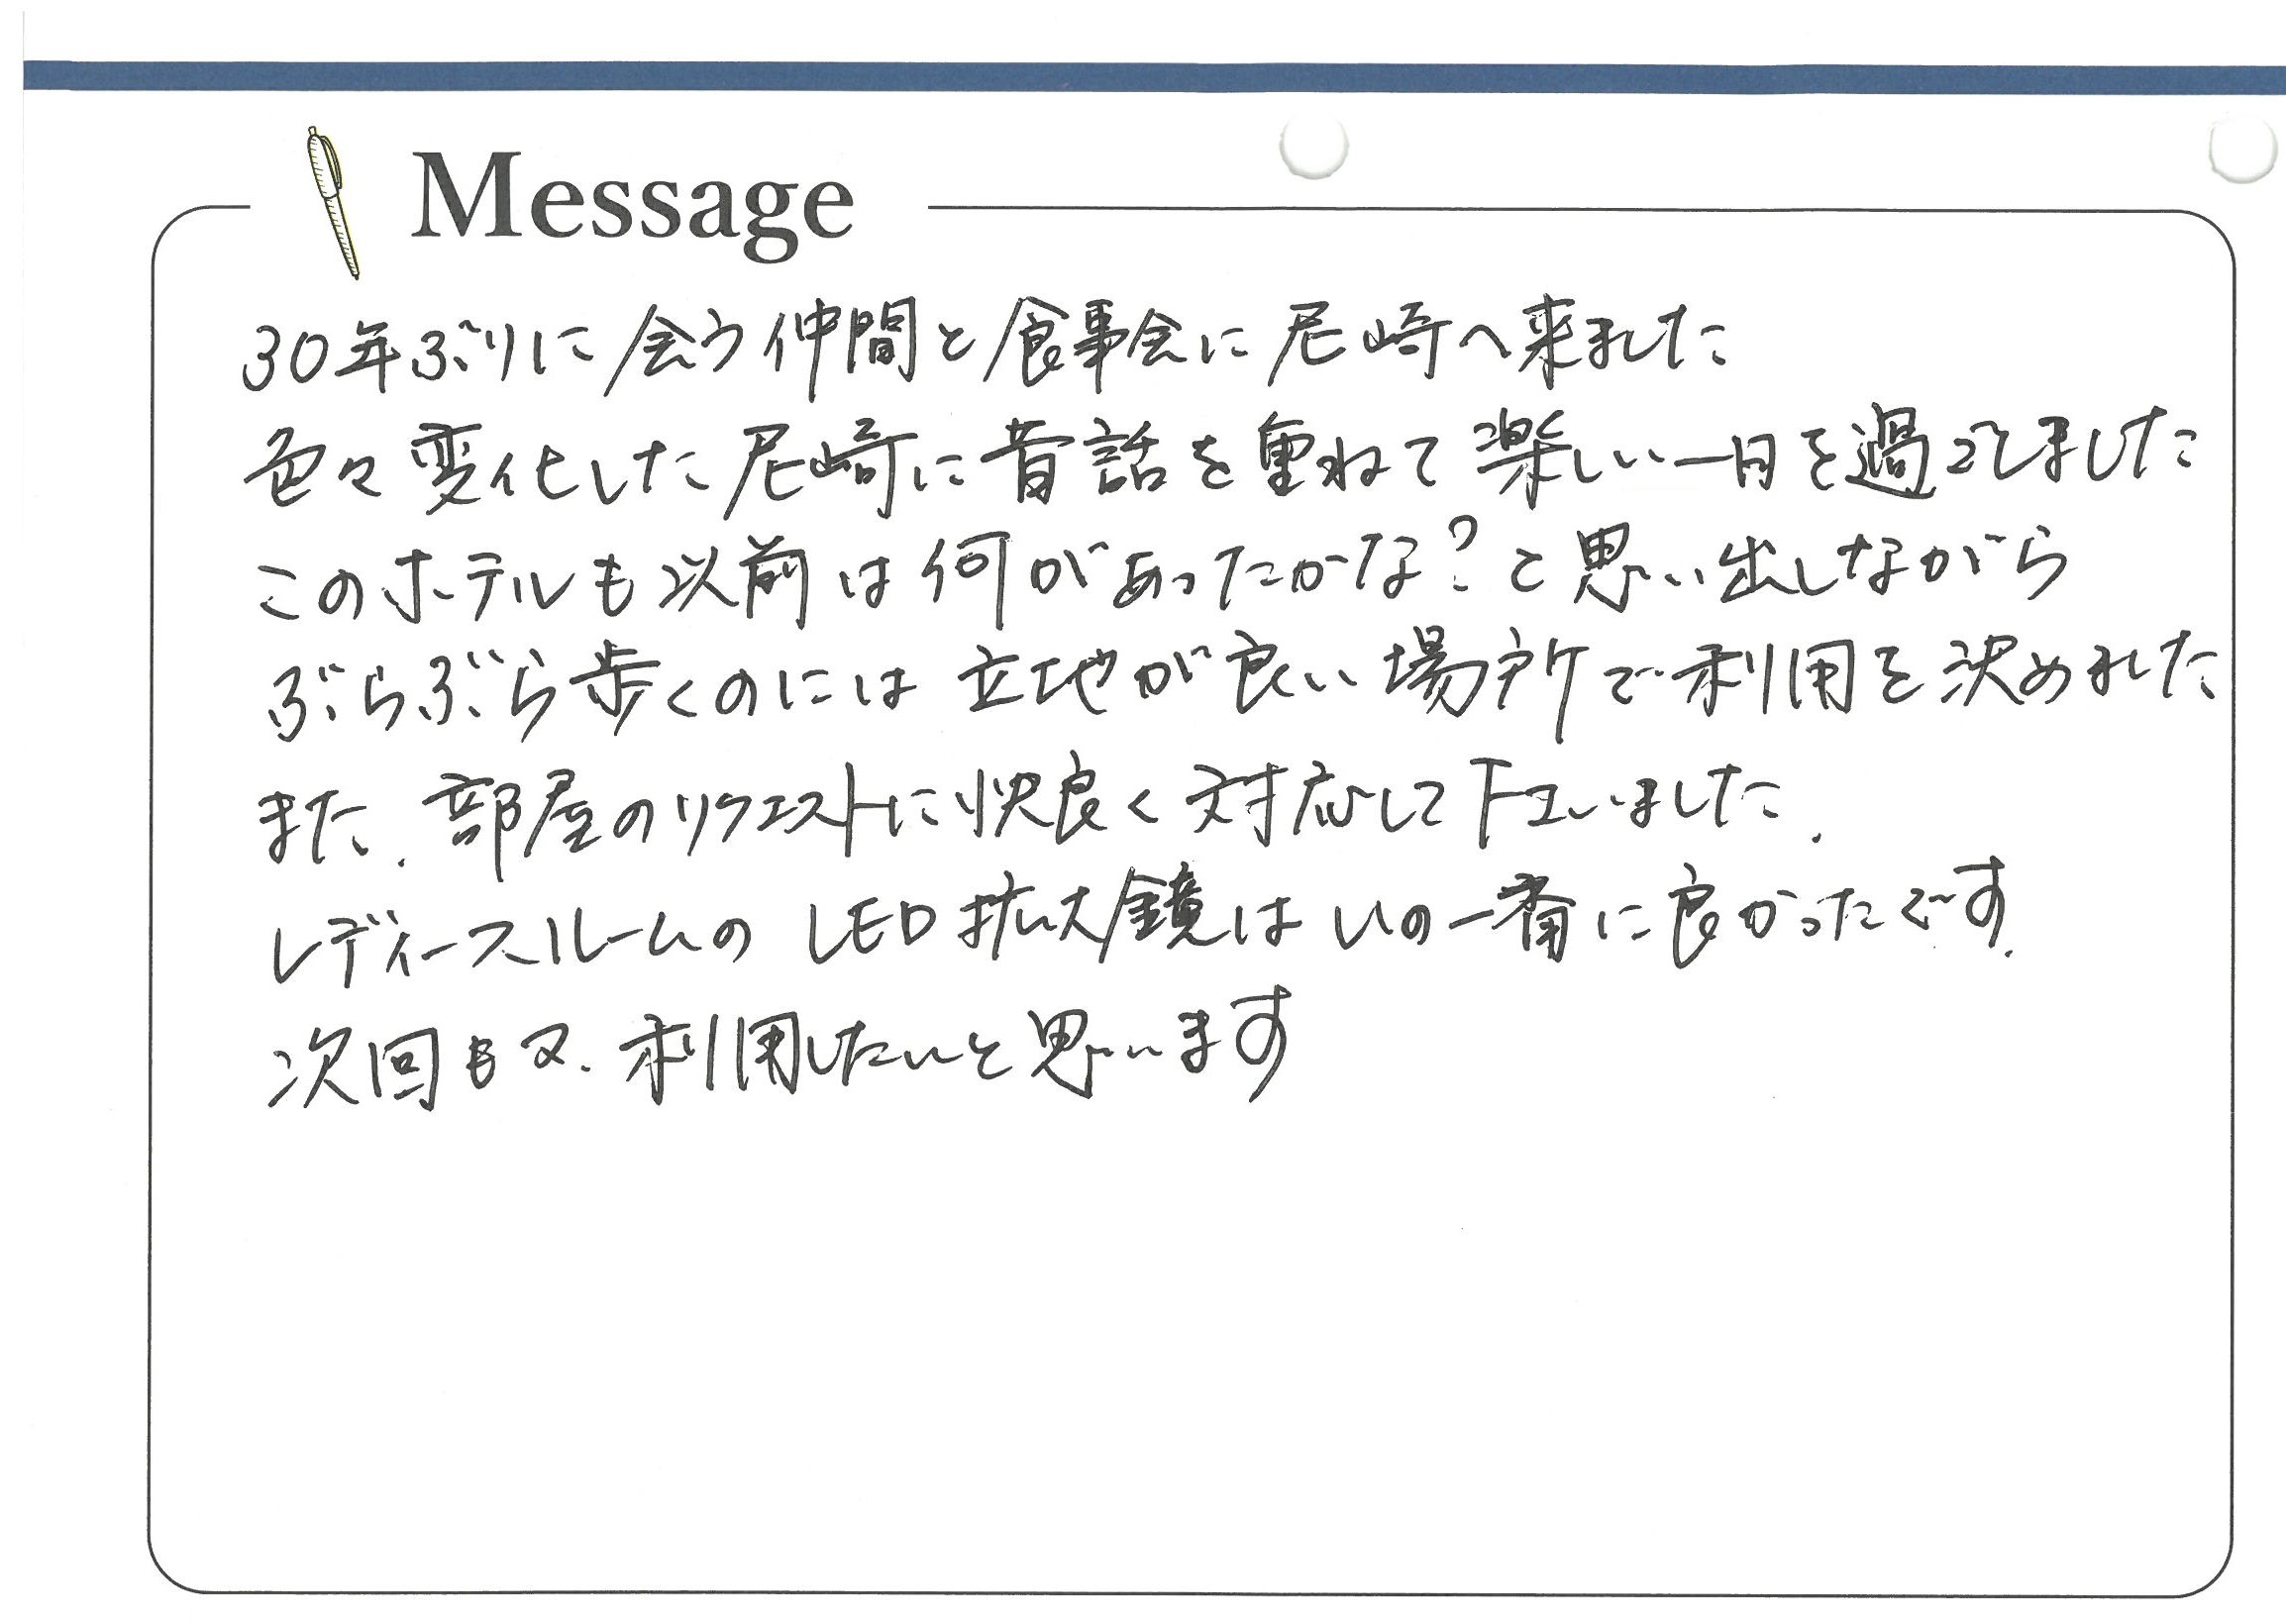 Message
30年ぶりに会う仲間と食事会に尼崎へ来ました
色々変化した尼崎に昔話を重ねて楽しい一日を過ごしました
このホテルも以前は何があったかな?と思い出しながら
ぶらぶら歩くのには立地が良い場所で利用を決めました
また、部屋のリクエストに快良く対応して下さいました.
レディースルームのLED拡大鏡はいの一番に良かったです.
次回も又、利用したいと思います